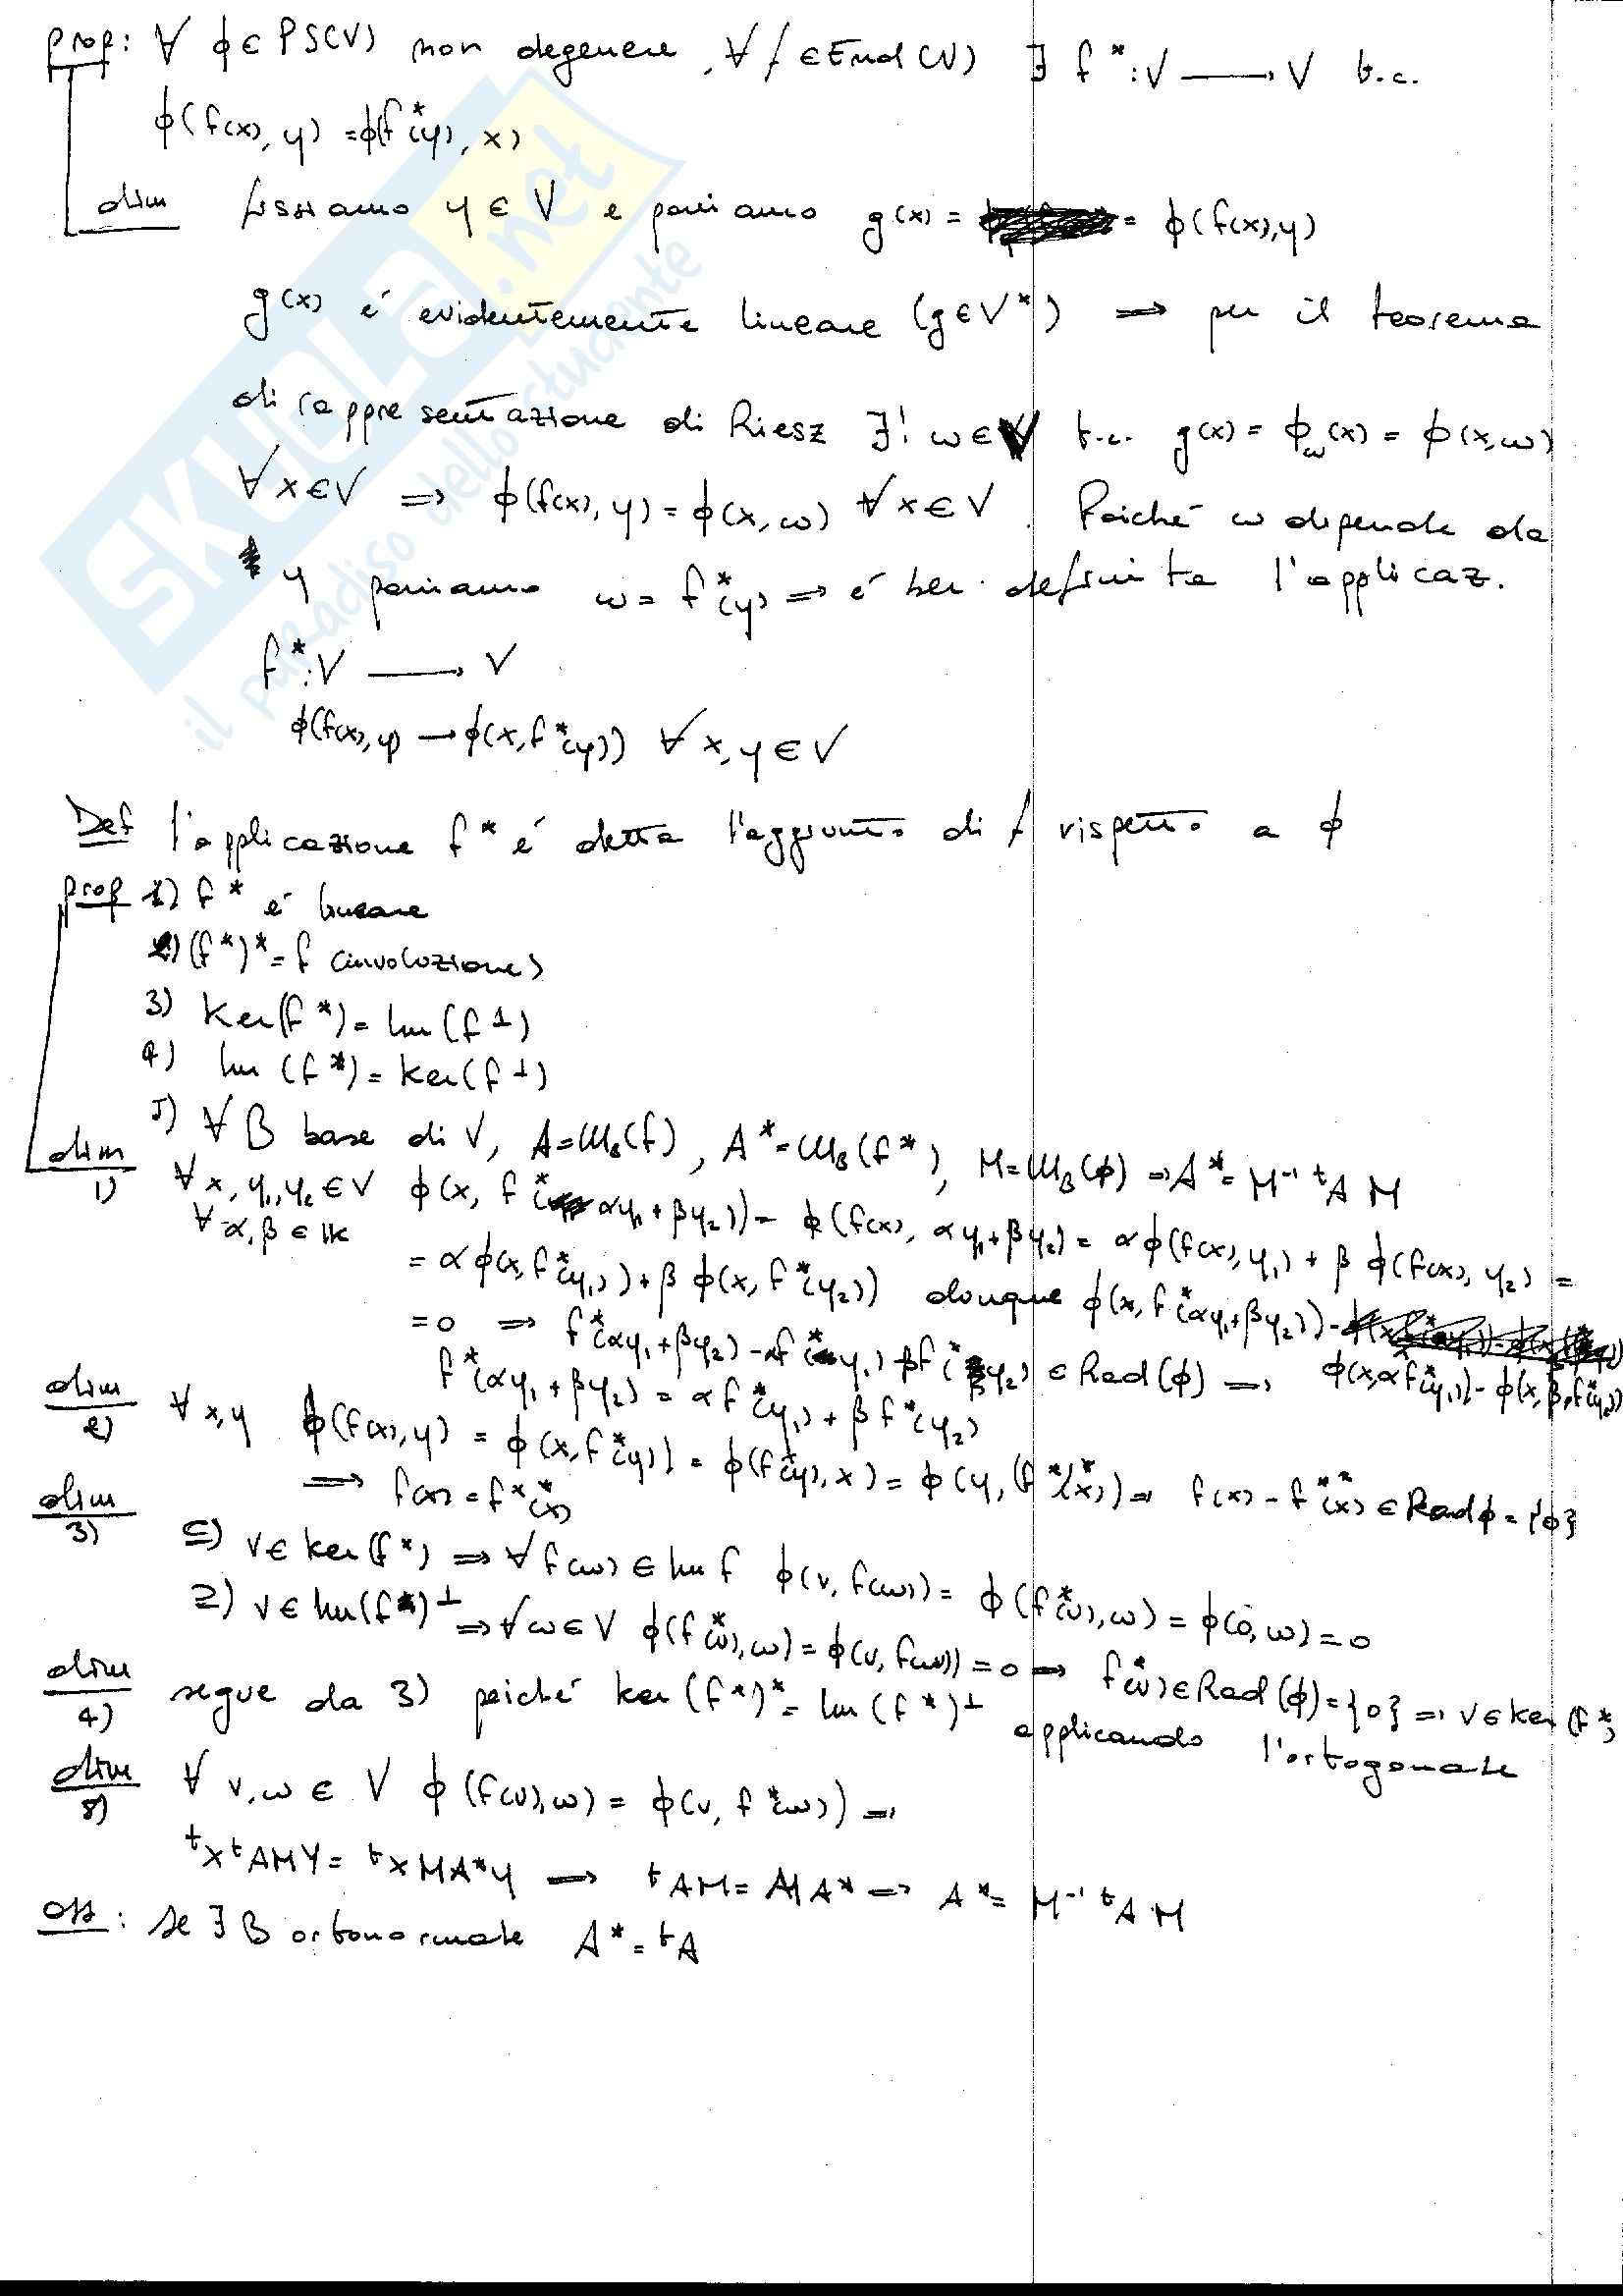 prop: ∀ ϕ ∈ PS(V) non degenere, ∀ f ∈ End(V) ∃ f*: V ⟶ V t.c.
ϕ(f(x), y) = ϕ(f*(y), x)
dim fissiamo y ∈ V e poniamo g(x) = = ϕ(f(x), y)
g(x) é evidentemente lineare (g ∈ V*) ⟹ per il teorema
di rappresentazione di Riesz ∃! ω ∈ V t.c. g(x) = ϕ_ω(x) = ϕ(x, ω)
∀ x ∈ V ⟹ ϕ(f(x), y) = ϕ(x, ω) ∀ x ∈ V. Poiché ω dipende da
y poniamo ω = f*(y) ⟹ é ben definita l'applicaz.
f*: V ⟶ V
ϕ(f(x), y) ⟶ ϕ(x, f*(y)) ∀ x, y ∈ V
Def l'applicazione f* é detta l'aggiunto di f rispetto a ϕ
prop 1) f* é lineare
2) (f*)* = f (involuzione)
3) Ker(f*) = Im(f⊥)
4) Im(f*) = Ker(f⊥)
5) ∀ B base di V, A = M_B(f), A* = M_B(f*), M = M_B(ϕ) ⟹ A* = M⁻¹ ᵗA M
dim 1) ∀ x, y₁, y₂ ∈ V ϕ(x, f*(αy₁ + βy₂)) = ϕ(f(x), αy₁ + βy₂) = αϕ(f(x), y₁) + βϕ(f(x), y₂) =
∀ α, β ∈ K = αϕ(x, f*(y₁)) + βϕ(x, f*(y₂)) dunque ϕ(x, f*(αy₁ + βy₂)) - ϕ(x, αf*(y₁)) - ϕ(x, βf*(y₂))
= 0 ⟹ f*(αy₁ + βy₂) - αf*(y₁) - βf*(y₂) ∈ Rad(ϕ) ⟹
f*(αy₁ + βy₂) = αf*(y₁) + βf*(y₂)
dim 2) ∀ x, y ϕ(f(x), y) = ϕ(x, f*(y)) = ϕ(f*(y), x) = ϕ(y, (f*)*(x)) ⟹ f(x) - f**(x) ∈ Rad ϕ = {0}
⟹ f(x) = f**(x)
dim 3) ⊆) v ∈ Ker(f*) ⟹ ∀ f(ω) ∈ Im f ϕ(v, f(ω)) = ϕ(f*(v), ω) = ϕ(0, ω) = 0
⊇) v ∈ Im(f*)⊥ ⟹ ∀ ω ∈ V ϕ(f*(v), ω) = ϕ(v, f(ω)) = 0 ⟹ f*(v) ∈ Rad(ϕ) = {0} ⟹ v ∈ Ker(f*)
dim 4) segue da 3) poiché Ker(f*)* = Im(f*)⊥ applicando l'ortogonale
dim 5) ∀ v, ω ∈ V ϕ(f(v), ω) = ϕ(v, f*(ω)) ⟹
ᵗX ᵗA M Y = ᵗX M A* Y ⟶ ᵗA M = M A* ⟹ A* = M⁻¹ ᵗA M
oss: se ∃ B ortonormale A* = ᵗA
SKUOLA.net
il paradiso dello studente